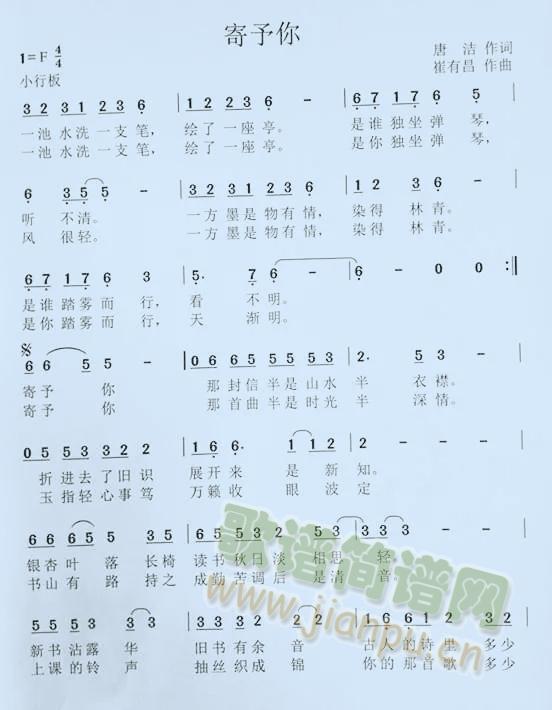 寄予你
1=F 4/4
唐 洁 作词
小行板
崔有昌 作曲
3 2 3 1 2 3 6 | 1 2 2 3 6 - | 6 7 1 7 6 3 5
一池水洗一支笔, 绘了一座亭。 是谁独坐弹琴,
一池水洗一支笔, 绘了一座亭。 是你独坐弹琴,
6 3 5 5 - | 3 2 3 1 2 3 6 | 1 2 2 3 6 -
听不清。 一方墨是物有情, 染得林青。
风很轻。 一方墨是物有情, 染得林青。
6 7 1 7 6 3 | 5. 7 6 | 6 - 0 0 :||
是谁踏雾而行, 看不明。
是你踏雾而行, 天渐明。
6 6 5 5 - | 0 6 6 5 5 5 5 3 | 2. 5 3 -
寄予你 那封信半是山水半衣襟。
寄予你 那首曲半是时光半深情。
0 5 5 3 3 2 2 | 1 6 6. 1 1 2 | 2 - - -
折进去了旧识 展开来是新知。
玉指轻心事笃 万籁收眼波定
6 6 5 6 3 3 5 | 6 5 5 3 2 3 3 3 | 3 3 1 1 - -
银杏叶落长椅 读书秋日淡相思轻。
书山有路持之 成勤苦调后是清音。
5 5 5 3 3 3 | 5 5 5 3 2 | 1 6 6 1 6 3 2
新书沾露华 旧书有余音 古人的诗里多少
上课的铃声 抽丝织成锦 你的那音歌多少
歌谱简谱网
www.jianpu.cn